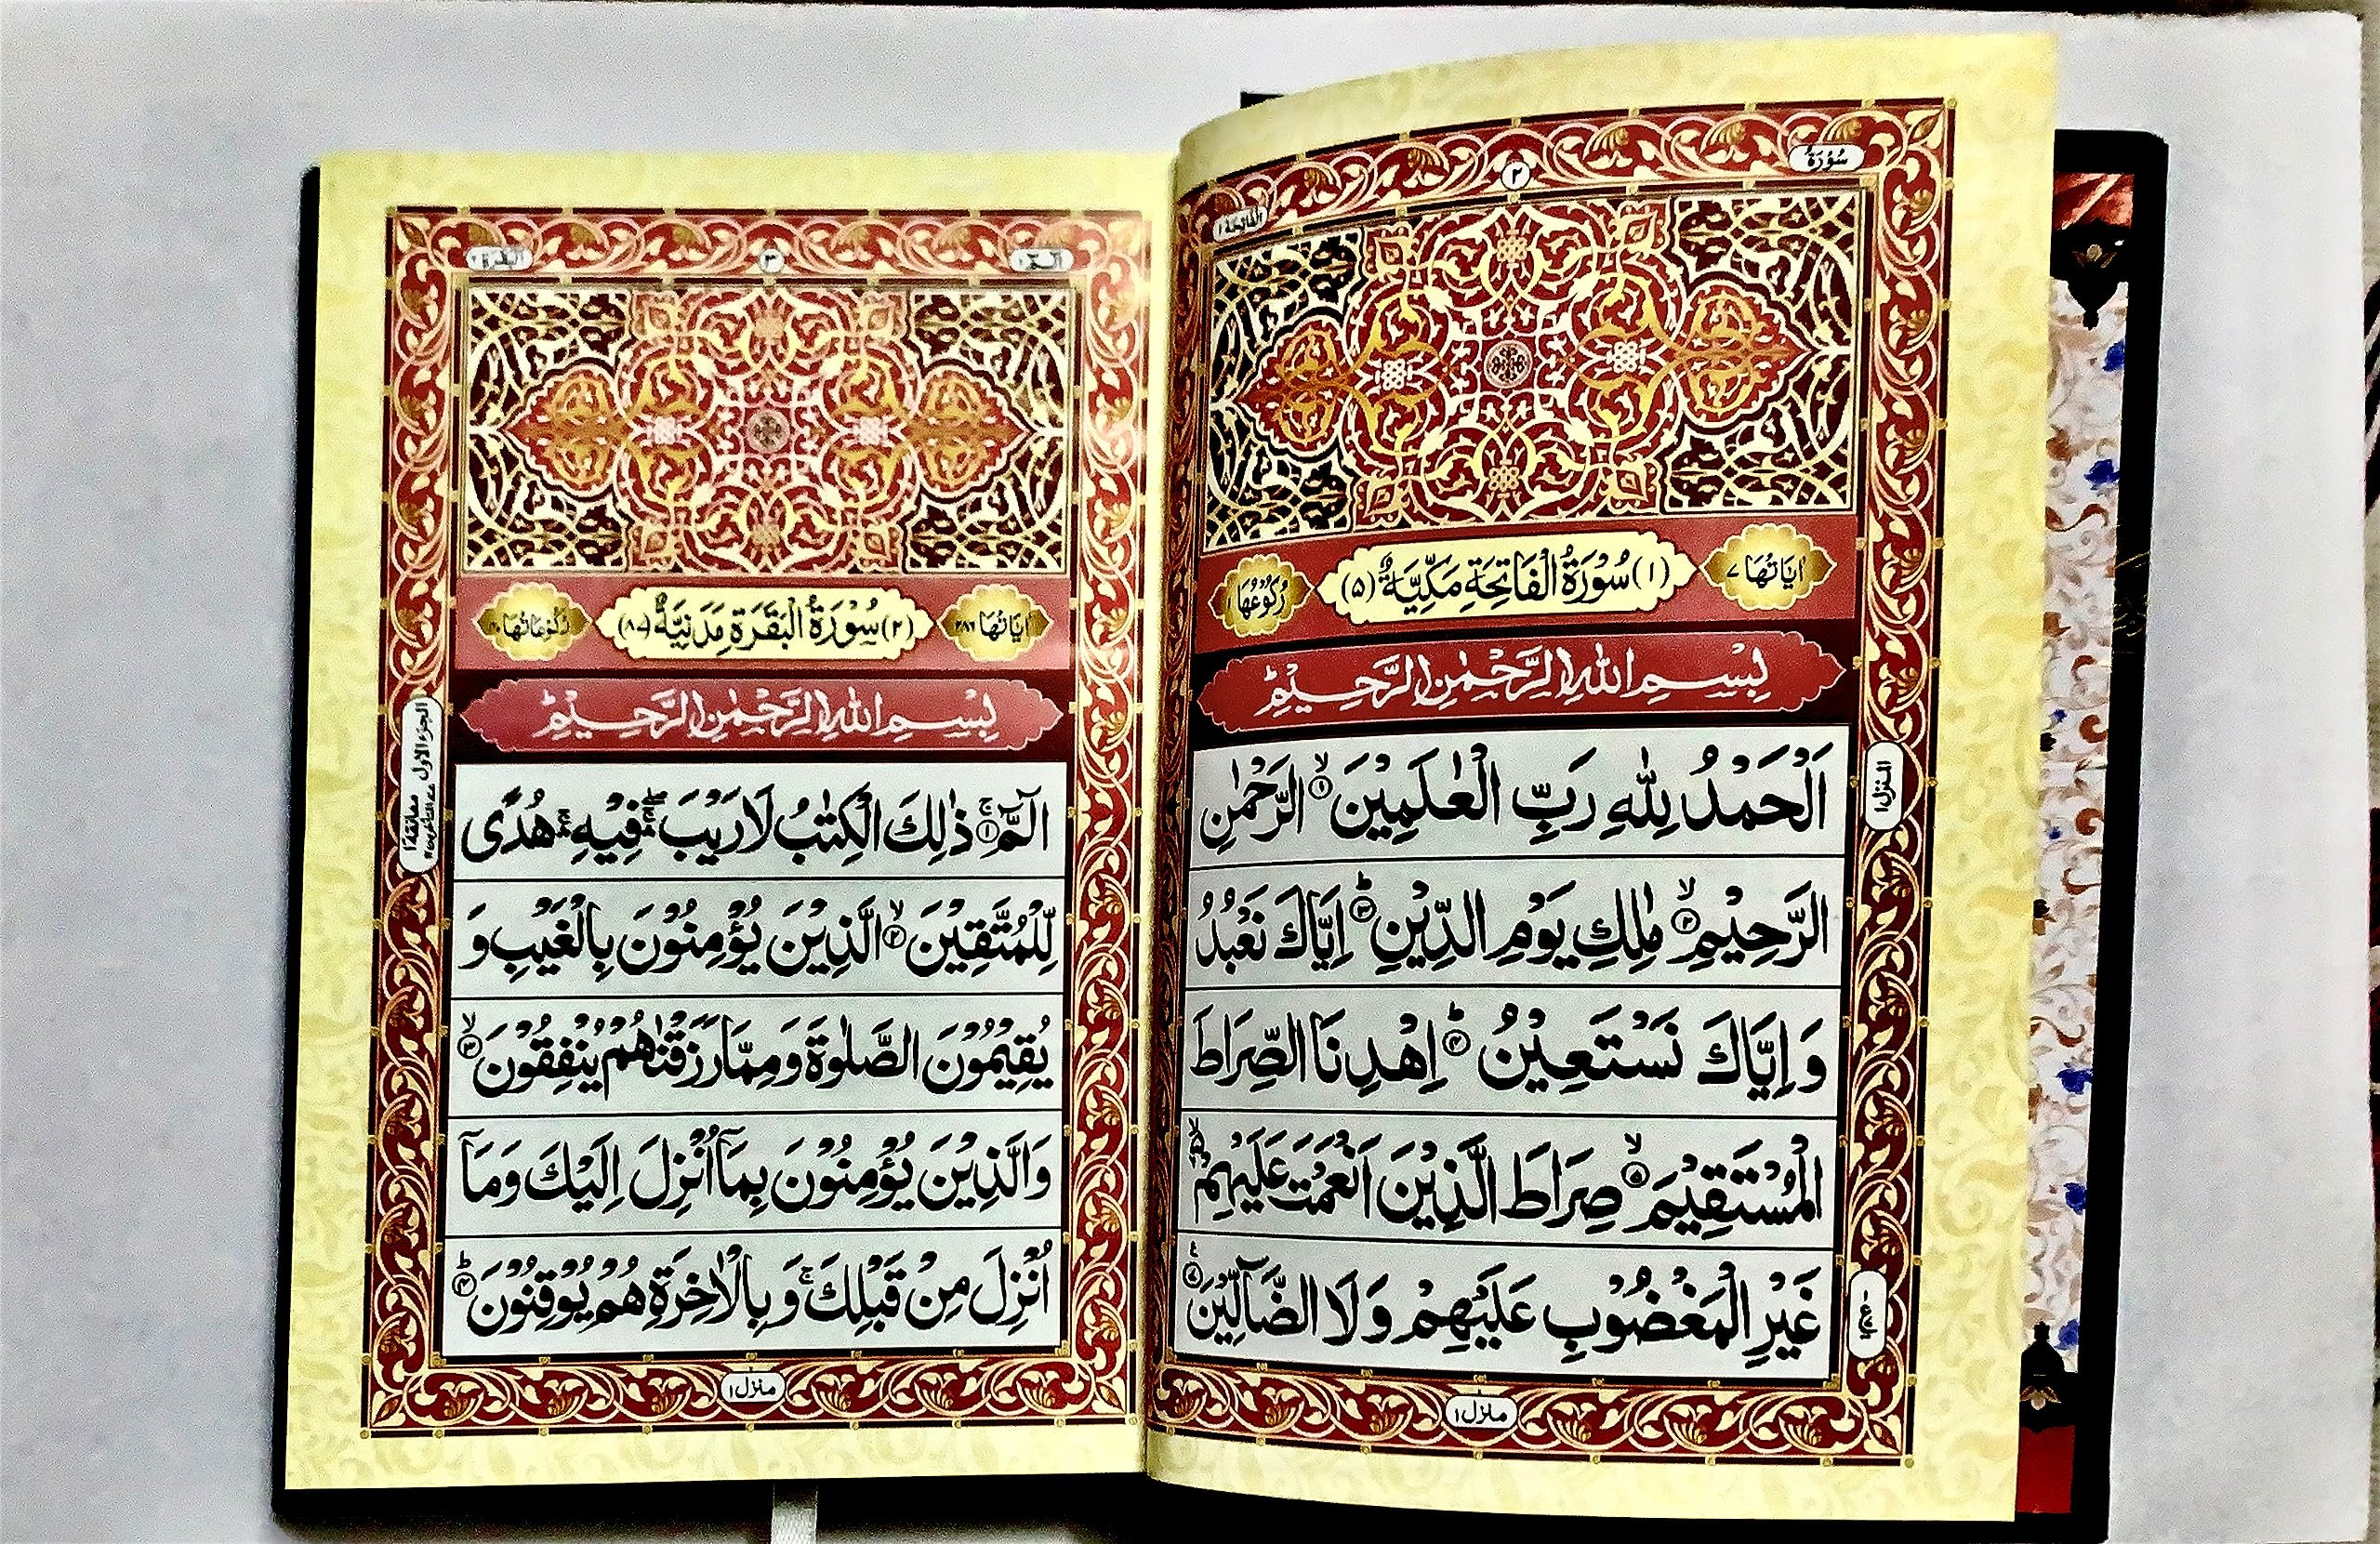 سُوْرَةُ
٢
الْفَاتِحَة ١
اٰيَاتُهَا ٧
(١) سُوْرَةُ الْفَاتِحَةِ مَكِّيَّةٌ (٥)
رُكُوْعُهَا ١
بِسْمِ اللّٰهِ الرَّحْمٰنِ الرَّحِيْمِ
اَلْحَمْدُ لِلّٰهِ رَبِّ الْعٰلَمِيْنَ ۙ﴿١﴾ الرَّحْمٰنِ
الرَّحِيْمِ ۙ﴿٢﴾ مٰلِكِ يَوْمِ الدِّيْنِ ؕ﴿٣﴾ اِيَّاكَ نَعْبُدُ
وَ اِيَّاكَ نَسْتَعِيْنُ ؕ﴿٤﴾ اِهْدِنَا الصِّرَاطَ
الْمُسْتَقِيْمَ ۙ﴿٥﴾ صِرَاطَ الَّذِيْنَ اَنْعَمْتَ عَلَيْهِمْ ۙ
غَيْرِ الْمَغْضُوْبِ عَلَيْهِمْ وَلَا الضَّآلِّيْنَ ﴿٧﴾
المنزل ١
منزل ١
الٓمّٓ ١
٣
الْبَقَرَة ٢
اٰيَاتُهَا ٢٨٦
(٢) سُوْرَةُ الْبَقَرَةِ مَدَنِيَّةٌ (٨٧)
رُكُوْعَاتُهَا ٤٠
بِسْمِ اللّٰهِ الرَّحْمٰنِ الرَّحِيْمِ
الٓمّٓ ۚ﴿١﴾ ذٰلِكَ الْكِتٰبُ لَا رَيْبَ ۛۖ فِيْهِ ۛۚ هُدًى
لِّلْمُتَّقِيْنَ ۙ﴿٢﴾ الَّذِيْنَ يُؤْمِنُوْنَ بِالْغَيْبِ وَ
يُقِيْمُوْنَ الصَّلٰوةَ وَمِمَّا رَزَقْنٰهُمْ يُنْفِقُوْنَ ۙ﴿٣﴾
وَالَّذِيْنَ يُؤْمِنُوْنَ بِمَآ اُنْزِلَ اِلَيْكَ وَمَآ
اُنْزِلَ مِنْ قَبْلِكَ ۚ وَ بِالْاٰخِرَةِ هُمْ يُوْقِنُوْنَ ؕ﴿٤﴾
الجزء الاول
معانقة ١
منزل ١